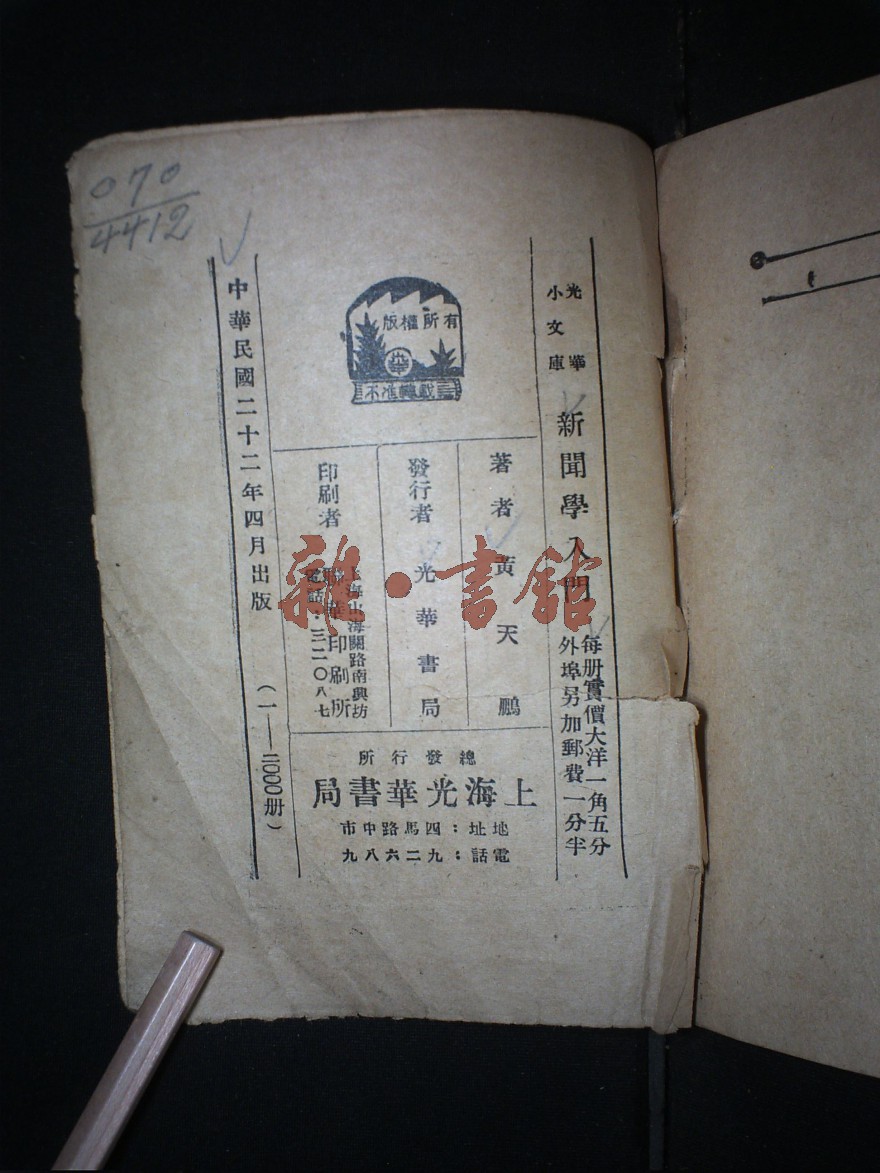 070
4412
光華
小文庫
新聞學入門
每册實價大洋一角五分
外埠另加郵費一分半
版權所有
不准轉載
著者 黃天鵬
發行者 光華書局
印刷者 聯華印刷所
上海山海關路南興坊
電話：三二〇八七
總發行所
上海光華書局
地址：四馬路中市
電話：九二六八九
中華民國二十二年四月出版
（一——二〇〇〇册）
雜·書館